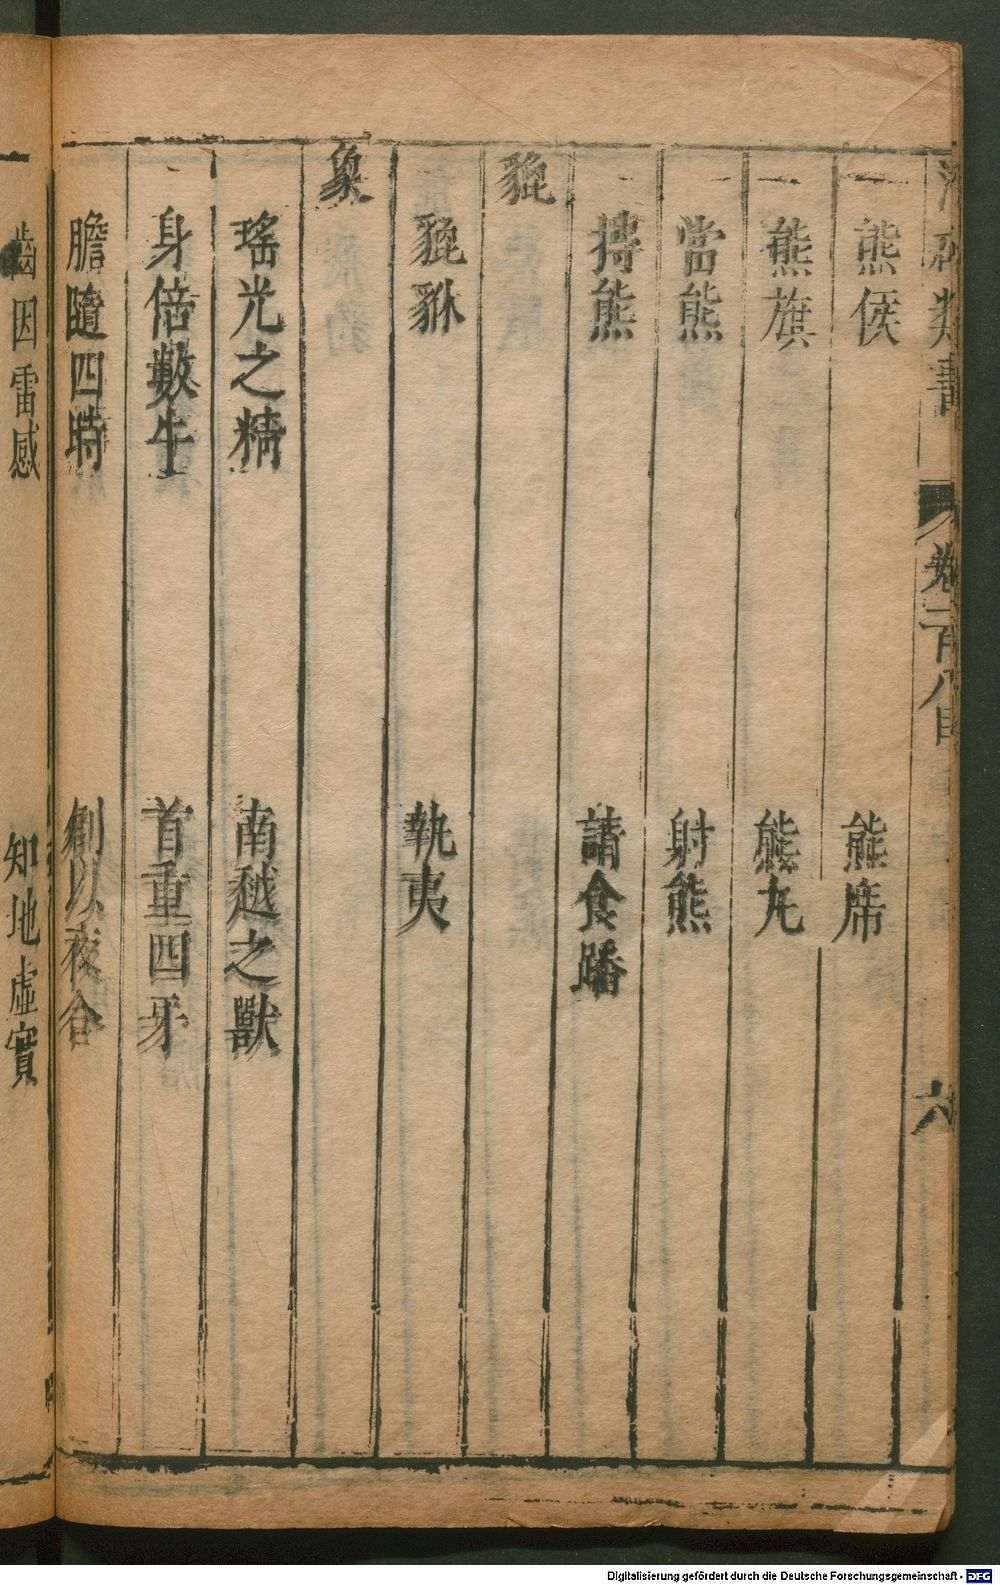 類書 卷二百八目 六
熊侯 熊席
熊旗 熊丸
當熊 射熊
摶熊 請食蹯
貔
貔貅 執夷
象
瑤光之精 南越之獸
身倍數牛 首重四牙
膽隨四時 創以夜合
齒因雷感 知地虛實
Digitalisierung gefördert durch die Deutsche Forschungsgemeinschaft - DFG